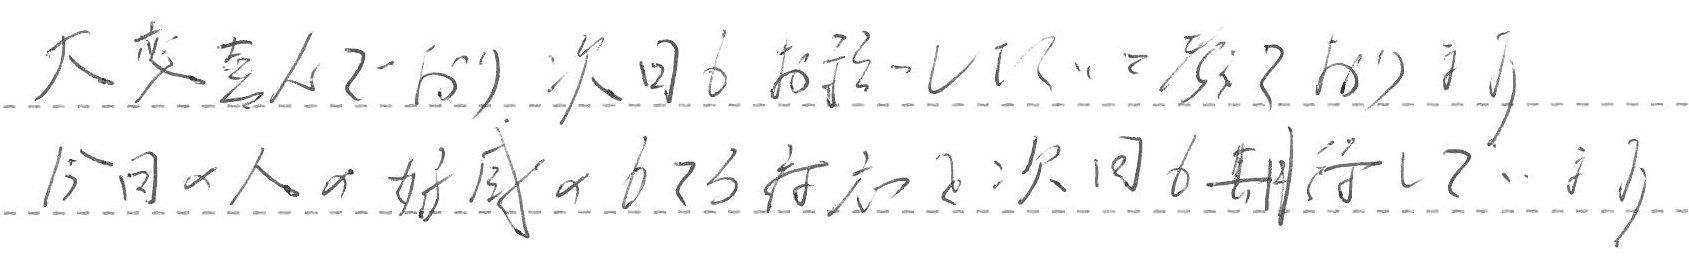 大変喜んでおり次回もお願いしたいと考えております
今回の人の好感のもてる対応を次回も期待しています